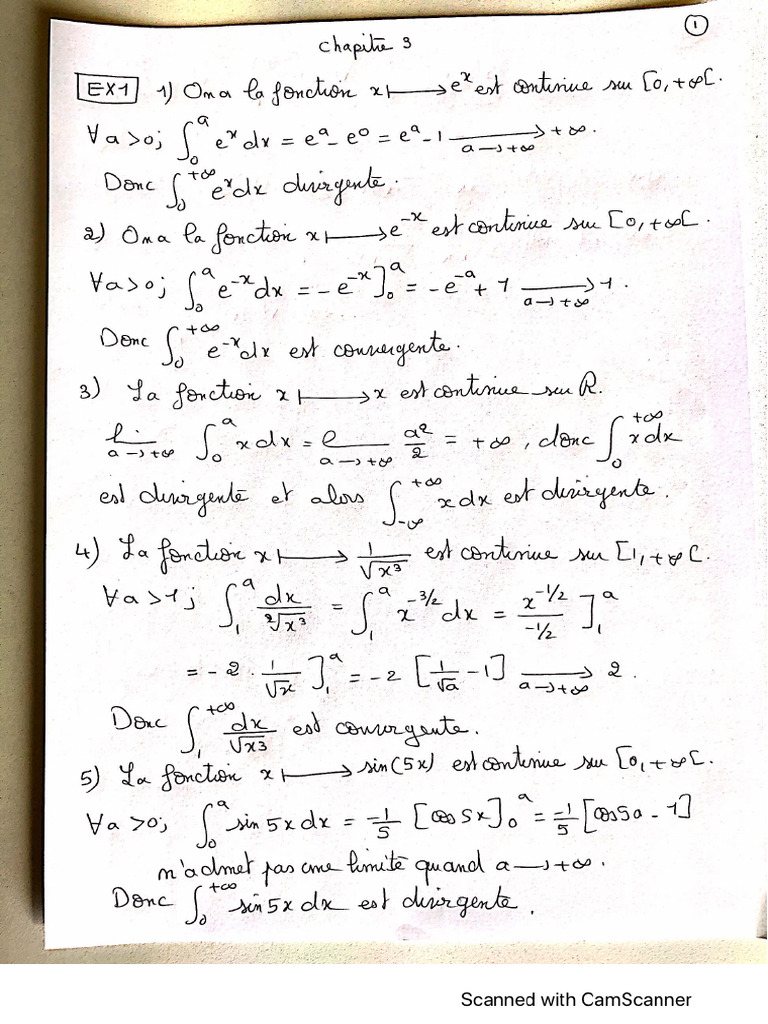 ①
Chapitre 3
EX1 1) On a la fonction x ⟼ eˣ est continue sur [0, +∞[.
∀a>0; ∫₀ᵃ eˣ dx = eᵃ - e⁰ = eᵃ - 1 ⟶ +∞. a→+∞
Donc ∫₀⁺∞ eˣ dx divergente.
2) On a la fonction x ⟼ e⁻ˣ est continue sur [0, +∞[.
∀a>0; ∫₀ᵃ e⁻ˣ dx = -e⁻ˣ]₀ᵃ = -e⁻ᵃ + 1 ⟶ 1. a→+∞
Donc ∫₀⁺∞ e⁻ˣ dx est convergente.
3) La fonction x ⟼ x est continue sur R.
lim a→+∞ ∫₀ᵃ x dx = l a→+∞ a²/2 = +∞, donc ∫₀⁺∞ x dx
est divergente et alors ∫₋∞⁺∞ x dx est divergente.
4) La fonction x ⟼ 1/√x³ est continue sur [1, +∞[.
∀a>1; ∫₁ᵃ dx/²√x³ = ∫₁ᵃ x^(-3/2) dx = x^(-1/2)/(-1/2) ]₁ᵃ
= -2 · 1/√x ]₁ᵃ = -2 [1/√a - 1] ⟶ 2. a→+∞
Donc ∫₁⁺∞ dx/√x³ est convergente.
5) La fonction x ⟼ sin(5x) est continue sur [0, +∞[.
∀a>0; ∫₀ᵃ sin 5x dx = -1/5 [cos 5x]₀ᵃ = -1/5 [cos 5a - 1]
n'admet pas une limite quand a → +∞.
Donc ∫₀⁺∞ sin 5x dx est divergente.
Scanned with CamScanner